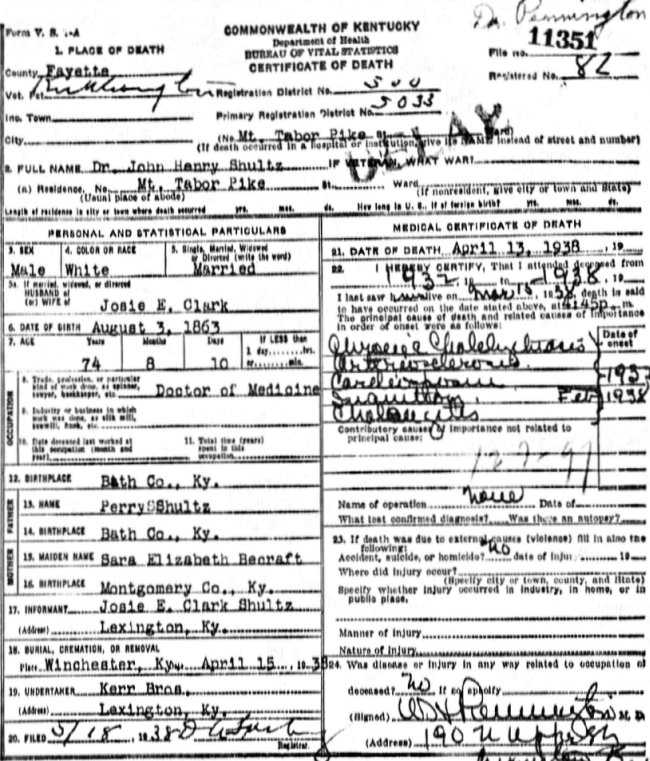 Dr. Pennington
Form V. S. 1-A
COMMONWEALTH OF KENTUCKY
Department of Health
BUREAU OF VITAL STATISTICS
CERTIFICATE OF DEATH
11351
File No.
Registered No. 82
1. PLACE OF DEATH
County Fayette
Vot. Pct.
Registration District No. 500
Primary Registration District No. 5033
Inc. Town
City
(No. Mt. Tabor Pike St. Ward)
(If death occurred in a hospital or institution, give its NAME instead of street and number)
DELAY
2. FULL NAME Dr. John Henry Shultz IF VETERAN, WHAT WAR?
(a) Residence, No. Mt. Tabor Pike St. Ward
(Usual place of abode) (If nonresident, give city or town and State)
Length of residence in city or town where death occurred yrs. mos. ds. How long in U. S., if of foreign birth? yrs. mos. ds.
PERSONAL AND STATISTICAL PARTICULARS
3. SEX
Male
4. COLOR OR RACE
White
5. Single, Married, Widowed
or Divorced (write the word)
Married
5a. If married, widowed, or divorced
HUSBAND of
(or) WIFE of Josie E. Clark
6. DATE OF BIRTH August 3, 1863
7. AGE Years Months Days If LESS than
74 8 10 1 day, hrs.
or min.
OCCUPATION
8. Trade, profession, or particular
kind of work done, as spinner,
sawyer, bookkeeper, etc. Doctor of Medicine
9. Industry or business in which
work was done, as silk mill,
sawmill, bank, etc.
10. Date deceased last worked at
this occupation (month and
year)
11. Total time (years)
spent in this
occupation
12. BIRTHPLACE Bath Co., Ky.
FATHER
13. NAME Perry S Shultz
14. BIRTHPLACE Bath Co., Ky.
MOTHER
15. MAIDEN NAME Sara Elizabeth Becraft
16. BIRTHPLACE Montgomery Co., Ky.
17. INFORMANT Josie E. Clark Shultz
(Address) Lexington, Ky.
18. BURIAL, CREMATION, OR REMOVAL
Place Winchester, Ky. April 15, 1938
19. UNDERTAKER Kerr Bros.
(Address) Lexington, Ky.
20. FILED 5/18, 1938
Registrar.
MEDICAL CERTIFICATE OF DEATH
21. DATE OF DEATH April 13, 1938, 19
22. I HEREBY CERTIFY, That I attended deceased from
1932, 19 to 1938, 19
I last saw him alive on Mar 15, 1938, death is said
to have occurred on the date stated above, at 4:45 P. m.
The principal cause of death and related causes of importance
in order of onset were as follows:
Date of
onset
Arteriosclerosis
1932
Feb 1938
Contributory causes of importance not related to
principal cause:
Name of operation none Date of
What test confirmed diagnosis? Was there an autopsy?
23. If death was due to external causes (violence) fill in also the
following:
Accident, suicide, or homicide? No date of injury 19
Where did injury occur?
(Specify city or town, county, and State)
Specify whether injury occurred in industry, in home, or in
public place,
Manner of injury
Nature of injury
24. Was disease or injury in any way related to occupation of
deceased? No If so specify
(Signed) Pennington M. D.
(Address) 190 N Upper St